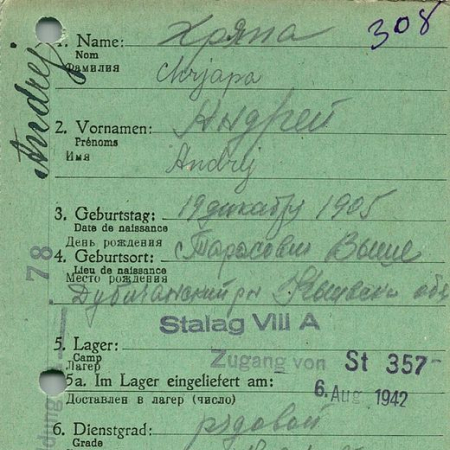 308
Andrej
1. Name: Хряпа
Nom
Фамилия Chrjapa
2. Vornamen: Андрей
Prénoms
Имя Andrej
3. Geburtstag: 19 декабря 1905
Date de naissance
День рождения
4. Geburtsort:
Lieu de naissance
Место рождения
78
Stalag VIII A
5. Lager:
Camp
Лагер
Zugang von St 357
5a. Im Lager eingeliefert am: 6. Aug 1942
Доставлен в лагер (число)
6. Dienstgrad: рядовой
Grade